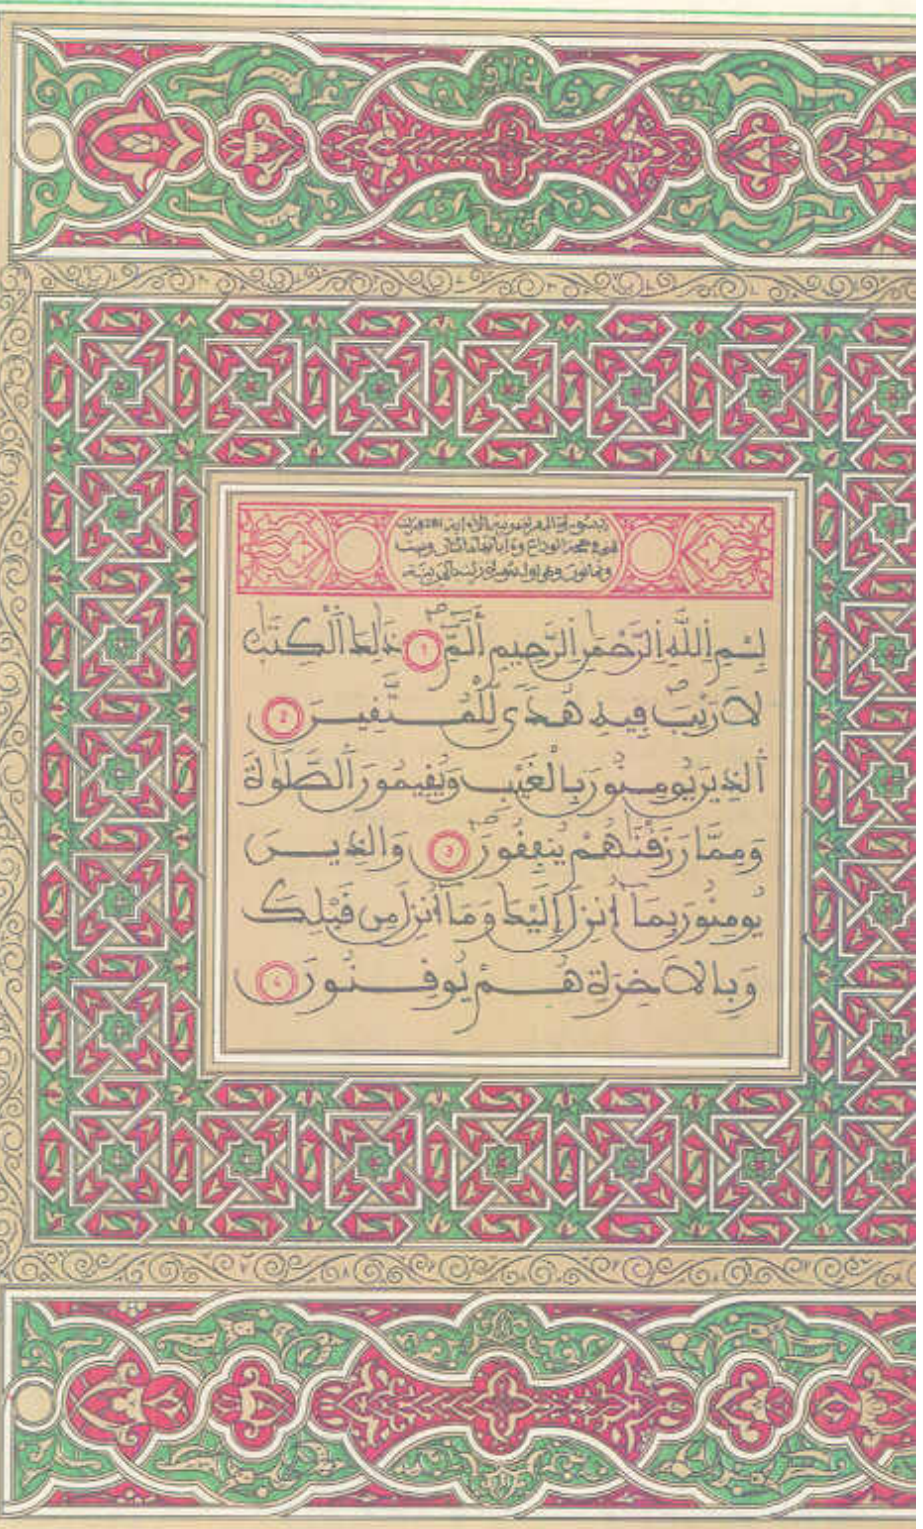 سورة البقرة مدنية إلا آية 281 فنزلت
بمنى في حجة الوداع وءاياتها مائتان وست
وثمانون وهي أول سورة نزلت بالمدينة
بِسْمِ اِللَّهِ اِلرَّحْمَٰنِ اِلرَّحِيمِ أَلَٓمِّٓۖ 1 ذَٰلِكَ اَلْكِتَٰبُ
لَا رَيْبَۖ فِيهِ هُدىً لِّلْمُتَّقِينَ 2
اَلذِينَ يُومِنُونَ بِالْغَيْبِ وَيُقِيمُونَ اَلصَّلَوٰةَ
وَمِمَّا رَزَقْنَٰهُمْ يُنفِقُونَۖ 3 وَالذِينَ
يُومِنُونَ بِمَآ أُنزِلَ إِلَيْكَ وَمَآ أُنزِلَ مِن قَبْلِكَ
وَبِالَاخِرَةِ هُمْ يُوقِنُونَ 4